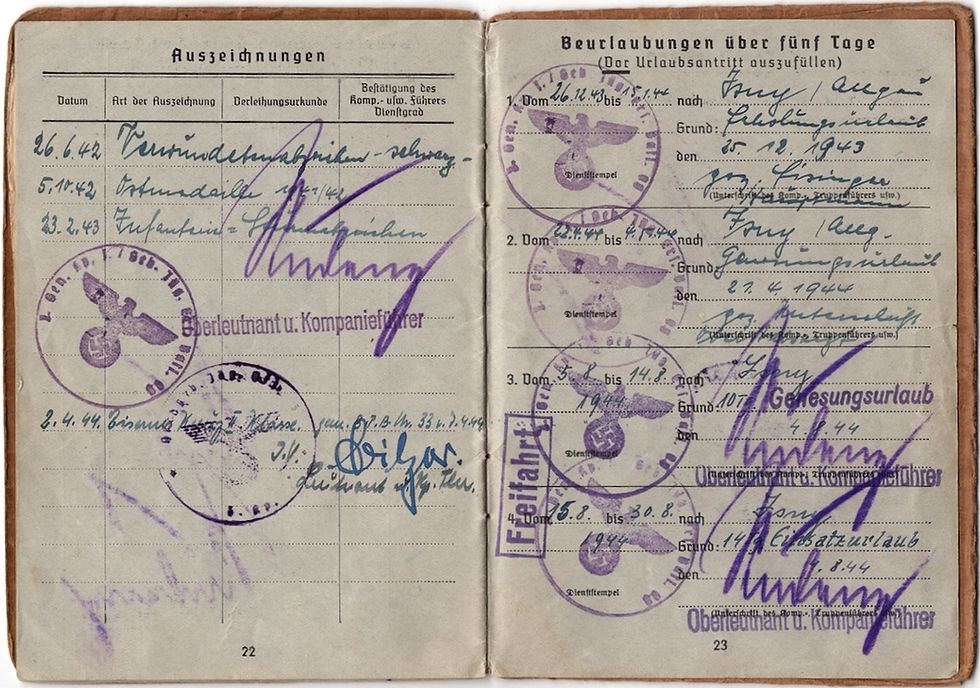 Auszeichnungen
Datum
Art der Auszeichnung
Verleihungsurkunde
Bestätigung des
Komp.- usw. Führers
Dienstgrad
26.6.42 Verwundetenabzeichen - schwarz -
5.10.42 Ostmedaille 1941/42
23.2.43 Infanterie = Sturmabzeichen
Oberleutnant u. Kompanieführer
2.4.44 Eisernes Kreuz II Klasse
I.V.
Leutnant u. Kp. Fhr.
22
Beurlaubungen über fünf Tage
(Vor Urlaubsantritt auszufüllen)
1. Vom 26.12.43 bis 15.1.44 nach Isny / Allgäu
Grund: Erholungsurlaub
den 25 12. 1943
gez. Eisinger
Dienststempel
(Unterschrift des Komp.- Truppenführers usw.)
Hauptmann
2. Vom bis nach Isny / Allg.
Grund: Genesungsurlaub
den 21. 4. 1944
gez.
Dienststempel
(Unterschrift des Komp.- Truppenführers usw.)
3. Vom 5.8. bis 14.8. nach Isny
1944 Grund: 10 Tg. Genesungsurlaub
den 4.8.44
Dienststempel
Oberleutnant u. Kompanieführer
Freifahrt
4. Vom 15.8. bis 30.8. nach Isny
1944 Grund: 14 Einsatzurlaub
den 4.8.44
Dienststempel
(Unterschrift des Komp.- Truppenführers usw.)
Oberleutnant u. Kompanieführer
23